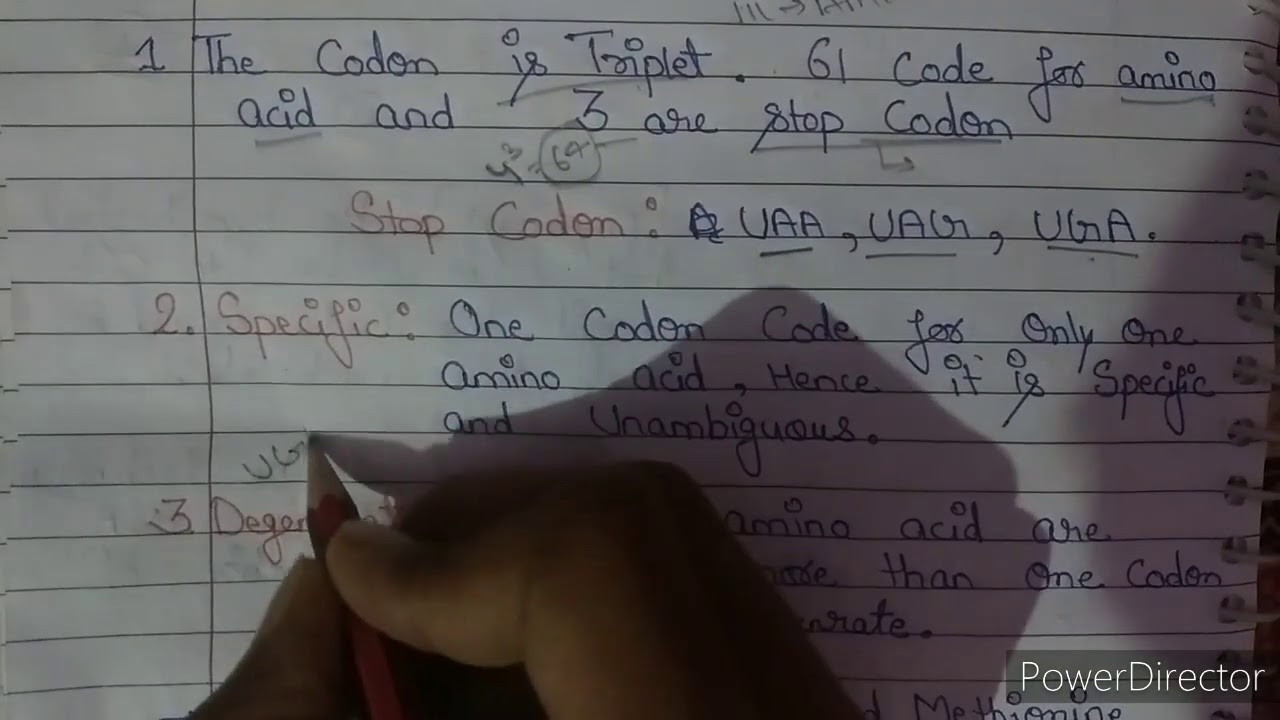 1 The Codon is Triplet. 61 Code for amino
acid and 3 are stop Codon
4³ = 64
Stop Codon: UAA, UAG, UGA.
2. Specific: One Codon Code for Only One
amino acid, Hence it is Specific
and Unambiguous.
UG
3 Degen amino acid are
more than One Codon
and Methionine
PowerDirector